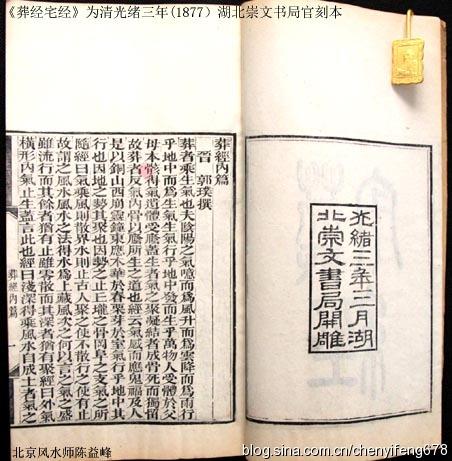 《葬经宅经》为清光绪三年(1877) 湖北崇文书局官刻本
光緒三年二月湖
北崇文書局開雕
葬經內篇
晉 郭璞撰
葬者乘生氣也夫陰陽之氣噫而為風升而為雲降而為雨行
乎地中而為生氣生氣行乎地中發而生乎萬物人受體於父
母本骸得氣遺體受廕蓋生者氣之聚凝結者成骨死而獨留
故葬者反氣內骨以廕所生之道也經云氣感而應鬼福及人
是以銅山西崩靈鐘東應木華於春栗芽於室氣行乎地中其
行也因地之勢其聚也因勢之止丘壠之骨岡阜之支氣之所
隨經曰氣乘風則散界水則止古人聚之使不散行之使有止
故謂之風水風水之法得水為上藏風次之何以言之氣之盛
雖流行而其餘者猶有止雖零散而其深者猶有聚經曰外氣
橫形內氣止生蓋言此也經曰淺深得乘風水自成土者氣之
葬經內篇
一
北京风水师陈益峰
blog.sina.com.cn/chenyifeng678